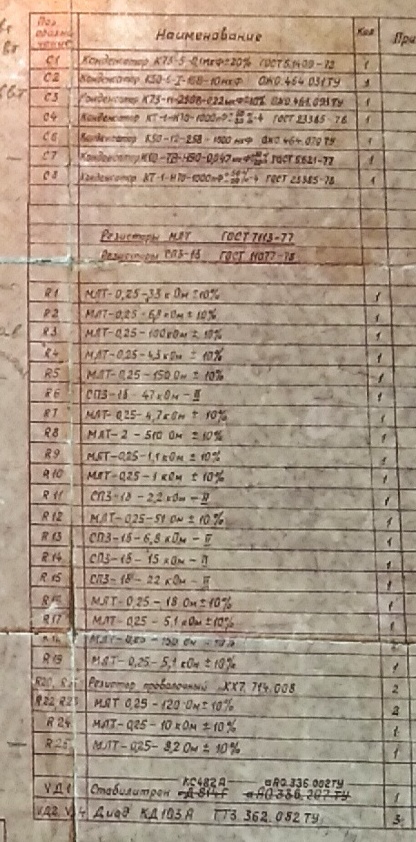 Поз. обозначение Наименование Кол При
С1 Конденсатор К73-5-0,1мкФ±20% ГОСТ 5.1409-72 1
С2 Конденсатор К50-6-I-16В-10мкФ ОЖО.464 031ТУ 1
С3 Конденсатор К73-11-250В-0,22мкФ±10% ОЖО.461.093ТУ 1
С4 Конденсатор КТ-1-Н70-1000пФ -4 ГОСТ 23385-78 1
С6 Конденсатор К50-12-25В-1000 мкФ ОЖО.464.079 ТУ 1
С7 Конденсатор Н90-0,047мкФ ГОСТ 5.621-77 1
С8 Конденсатор КТ-1-Н70-1000пФ -4 ГОСТ 23385-78 1
Резисторы МЛТ ГОСТ 7113-77
Резисторы СП3-1б ГОСТ 11077-78
R1 МЛТ-0,25-33 кОм ±10% 1
R2 МЛТ-0,25-6,8 кОм ±10% 1
R3 МЛТ-0,25-100кОм ±10% 1
R4 МЛТ-0,25-43 кОм ±10% 1
R5 МЛТ-0,25-150 Ом ±10% 1
R6 СП3-1б 47 кОм-II 1
R7 МЛТ-0,25-4,7кОм ±10% 1
R8 МЛТ-2-510 Ом ±10% 1
R9 МЛТ-0,25-1,1кОм ±10% 1
R10 МЛТ-0,25-1 кОм ±10% 1
R11 СП3-1б-2,2 кОм-II 1
R12 МЛТ-0,25-51 Ом ±10% 1
R13 СП3-1б-6,8 кОм-II 1
R14 СП3-1б-15 кОм-II 1
R15 СП3-1б-22 кОм-II 1
R16 МЛТ-0,25-18 Ом ±10% 1
R17 МЛТ-0,25-5,1 кОм ±10% 1
R18 МЛТ-0,25-150 Ом ±10%
R19 МЛТ-0,25-5,1 кОм ±10% 1
R20, Резистор проволочный ХХ7.714.008 2
R22 R23 МЛТ 0,25-120 Ом ±10% 2
R24 МЛТ-0,25-10 кОм ±10% 1
R25 МЛТ-0,25-8,2 Ом ±10% 1
КС482А аАО.336.002ТУ
VД1 Стабилитрон Д 814Г аАО.336.207 ТУ 1
VД2 VД4 Диод КД103А ТТ3 362.082 ТУ 3